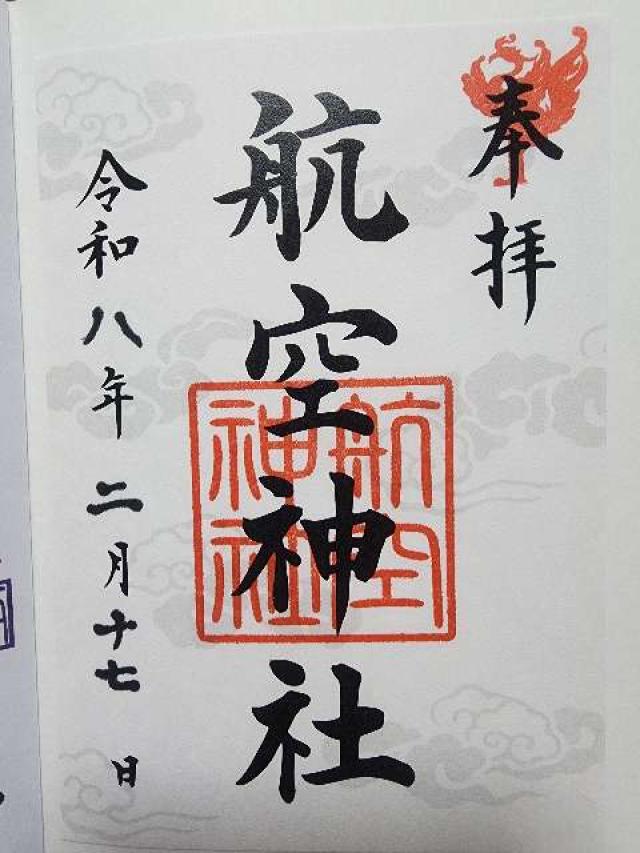 奉拝
航空神社
航空神社
令和八年二月十七日